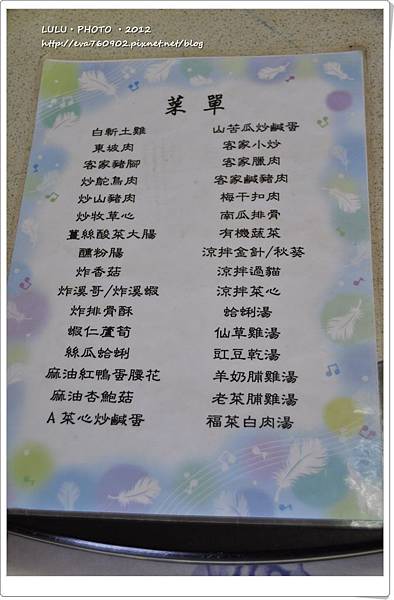 LULU‧PHOTO ‧2012
http://eva760902.pixnet.net/blog
菜單
白斬土雞
東坡肉
客家豬腳
炒鴕鳥肉
炒山豬肉
炒牧草心
薑絲酸菜大腸
醺粉腸
炸香菇
炸溪哥/炸溪蝦
炸排骨酥
蝦仁蘆筍
絲瓜蛤蜊
麻油紅鴨蛋腰花
麻油杏鮑菇
A菜心炒鹹蛋
山苦瓜炒鹹蛋
客家小炒
客家臘肉
客家鹹豬肉
梅干扣肉
南瓜排骨
有機蔬菜
涼拌金針/秋葵
涼拌過貓
涼拌菜心
蛤蜊湯
仙草雞湯
豇豆乾湯
羊奶脯雞湯
老菜脯雞湯
福菜白肉湯